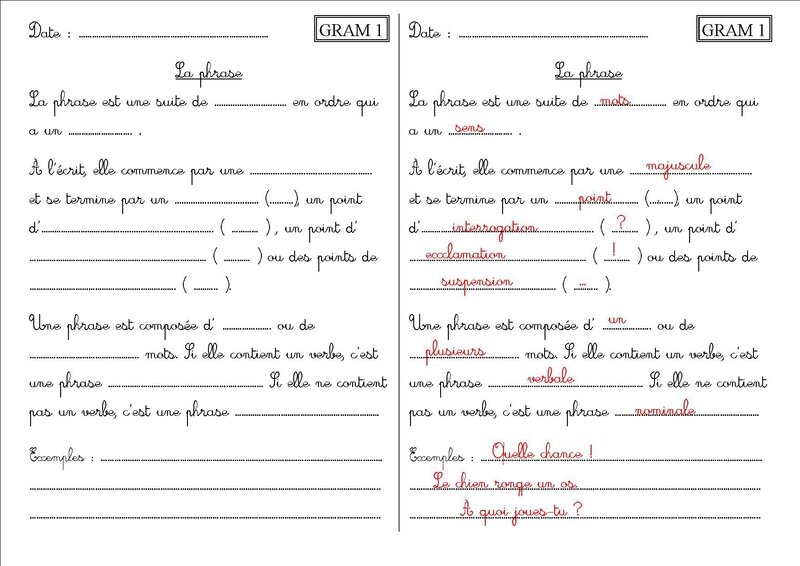 Date : ........................ GRAM 1
La phrase
La phrase est une suite de ............ en ordre qui
a un ............ .
À l'écrit, elle commence par une ............
et se termine par un ............ (........), un point
d'........................ ( ........ ), un point d'
........................ ( ........ ) ou des points de
........................ ( ........ ).
Une phrase est composée d' ............ ou de
............ mots. Si elle contient un verbe, c'est
une phrase ........................ Si elle ne contient
pas un verbe, c'est une phrase ........................
Exemples : ........................
........................
........................
Date : ........................ GRAM 1
La phrase
La phrase est une suite de mots en ordre qui
a un sens .
À l'écrit, elle commence par une majuscule
et se termine par un point (.), un point
d'interrogation ( ? ), un point d'
exclamation ( ! ) ou des points de
suspension ( ... ).
Une phrase est composée d' un ou de
plusieurs mots. Si elle contient un verbe, c'est
une phrase verbale Si elle ne contient
pas un verbe, c'est une phrase nominale
Exemples : Quelle chance !
Le chien ronge un os.
À quoi joues-tu ?